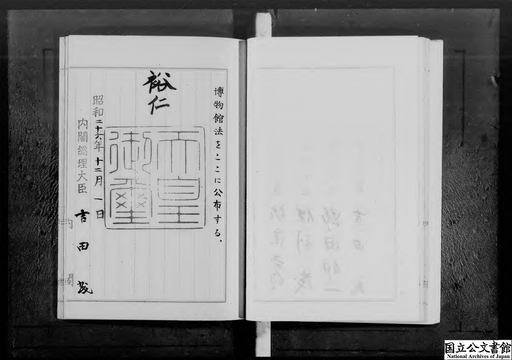 博物館法をここに公布する。
裕仁
天皇
御璽
昭和二十六年十二月一日
内閣総理大臣 吉田茂
内閣
国立公文書館
National Archives of Japan